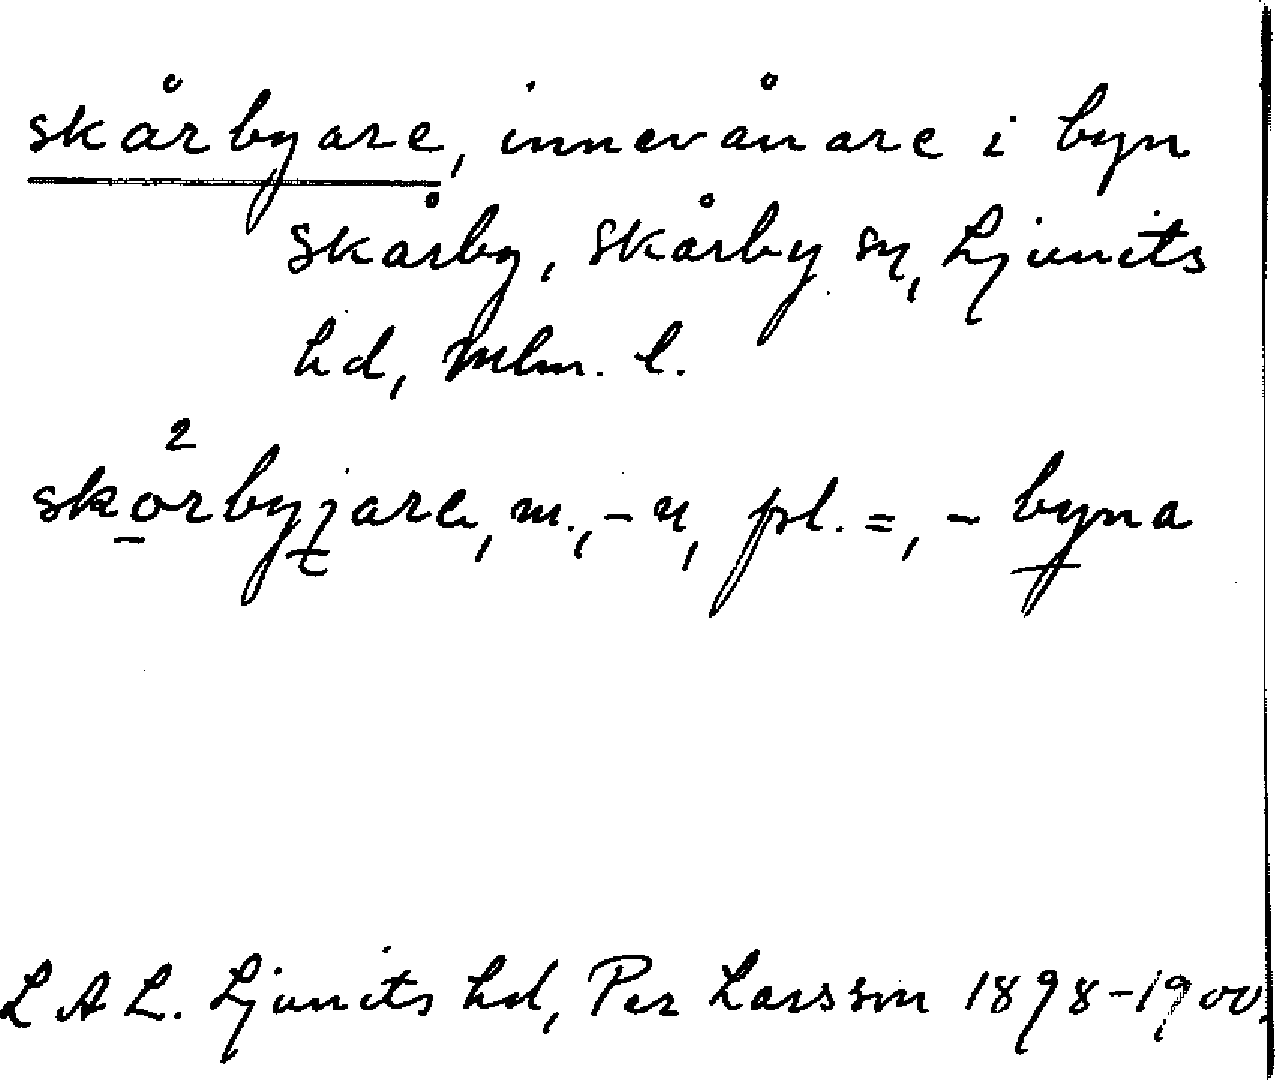 skårbyare, innevånare i byn
Skårby, Skårby sn, Ljunits
hd, Mlm. l.
sko²rbyjare, m., -n, pl. =, - byna
L A L. Ljunits hd, Per Larsson 1898-1900.